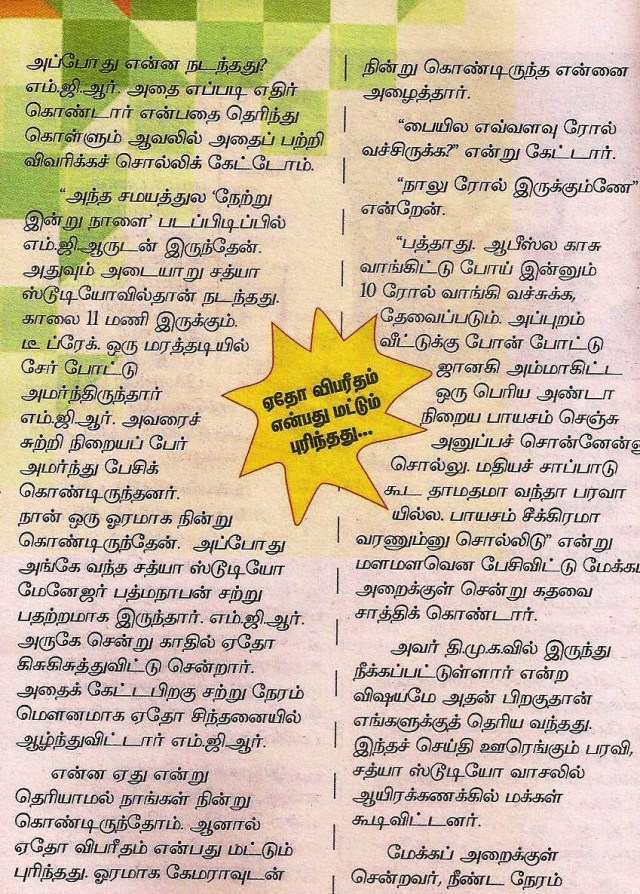 அப்போது என்ன நடந்தது?
எம்.ஜி.ஆர். அதை எப்படி எதிர்
கொண்டார் என்பதை தெரிந்து
கொள்ளும் ஆவலில் அதைப் பற்றி
விவரிக்கச் சொல்லிக் கேட்டோம்.
“அந்த சமயத்துல ‘நேற்று
இன்று நாளை’ படப்பிடிப்பில்
எம்.ஜி.ஆருடன் இருந்தேன்.
அதுவும் அடையாறு சத்யா
ஸ்டூடியோவில்தான் நடந்தது.
காலை 11 மணி இருக்கும்.
டீ ப்ரேக். ஒரு மரத்தடியில்
சேர் போட்டு
அமர்ந்திருந்தார்
எம்.ஜி.ஆர். அவரைச்
சுற்றி நிறையப் பேர்
அமர்ந்து பேசிக்
கொண்டிருந்தனர்.
நான் ஒரு ஓரமாக நின்று
கொண்டிருந்தேன். அப்போது
அங்கே வந்த சத்யா ஸ்டூடியோ
மேனேஜர் பத்மநாபன் சற்று
பதற்றமாக இருந்தார். எம்.ஜி.ஆர்.
அருகே சென்று காதில் ஏதோ
கிசுகிசுத்துவிட்டு சென்றார்.
அதைக் கேட்டபிறகு சற்று நேரம்
மௌனமாக ஏதோ சிந்தனையில்
ஆழ்ந்துவிட்டார் எம்.ஜி.ஆர்.
என்ன ஏது என்று
தெரியாமல் நாங்கள் நின்று
கொண்டிருந்தோம். ஆனால்
ஏதோ விபரீதம் என்பது மட்டும்
புரிந்தது. ஓரமாக கேமராவுடன்
நின்று கொண்டிருந்த என்னை
அழைத்தார்.
“பையில எவ்வளவு ரோல்
வச்சிருக்க?” என்று கேட்டார்.
“நாலு ரோல் இருக்கும்ணே”
என்றேன்.
“பத்தாது. ஆபீஸ்ல காசு
வாங்கிட்டு போய் இன்னும்
10 ரோல் வாங்கி வச்சுக்க,
தேவைப்படும். அப்புறம்
வீட்டுக்கு போன் போட்டு
ஜானகி அம்மாகிட்ட
ஒரு பெரிய அண்டா
நிறைய பாயசம் செஞ்சு
அனுப்பச் சொன்னேன்னு
சொல்லு. மதியச் சாப்பாடு
கூட தாமதமா வந்தா பரவா
யில்ல. பாயசம் சீக்கிரமா
வரணும்னு சொல்லிடு” என்று
மளமளவென பேசிவிட்டு மேக்கப்
அறைக்குள் சென்று கதவை
சாத்திக் கொண்டார்.
அவர் தி.மு.க.வில் இருந்து
நீக்கப்பட்டுள்ளார் என்ற
விஷயமே அதன் பிறகுதான்
எங்களுக்குத் தெரிய வந்தது.
இந்தச் செய்தி ஊரெங்கும் பரவி,
சத்யா ஸ்டூடியோ வாசலில்
ஆயிரக்கணக்கில் மக்கள்
கூடிவிட்டனர்.
மேக்கப் அறைக்குள்
சென்றவர், நீண்ட நேரம்
ஏதோ விபரீதம்
என்பது மட்டும்
புரிந்தது...